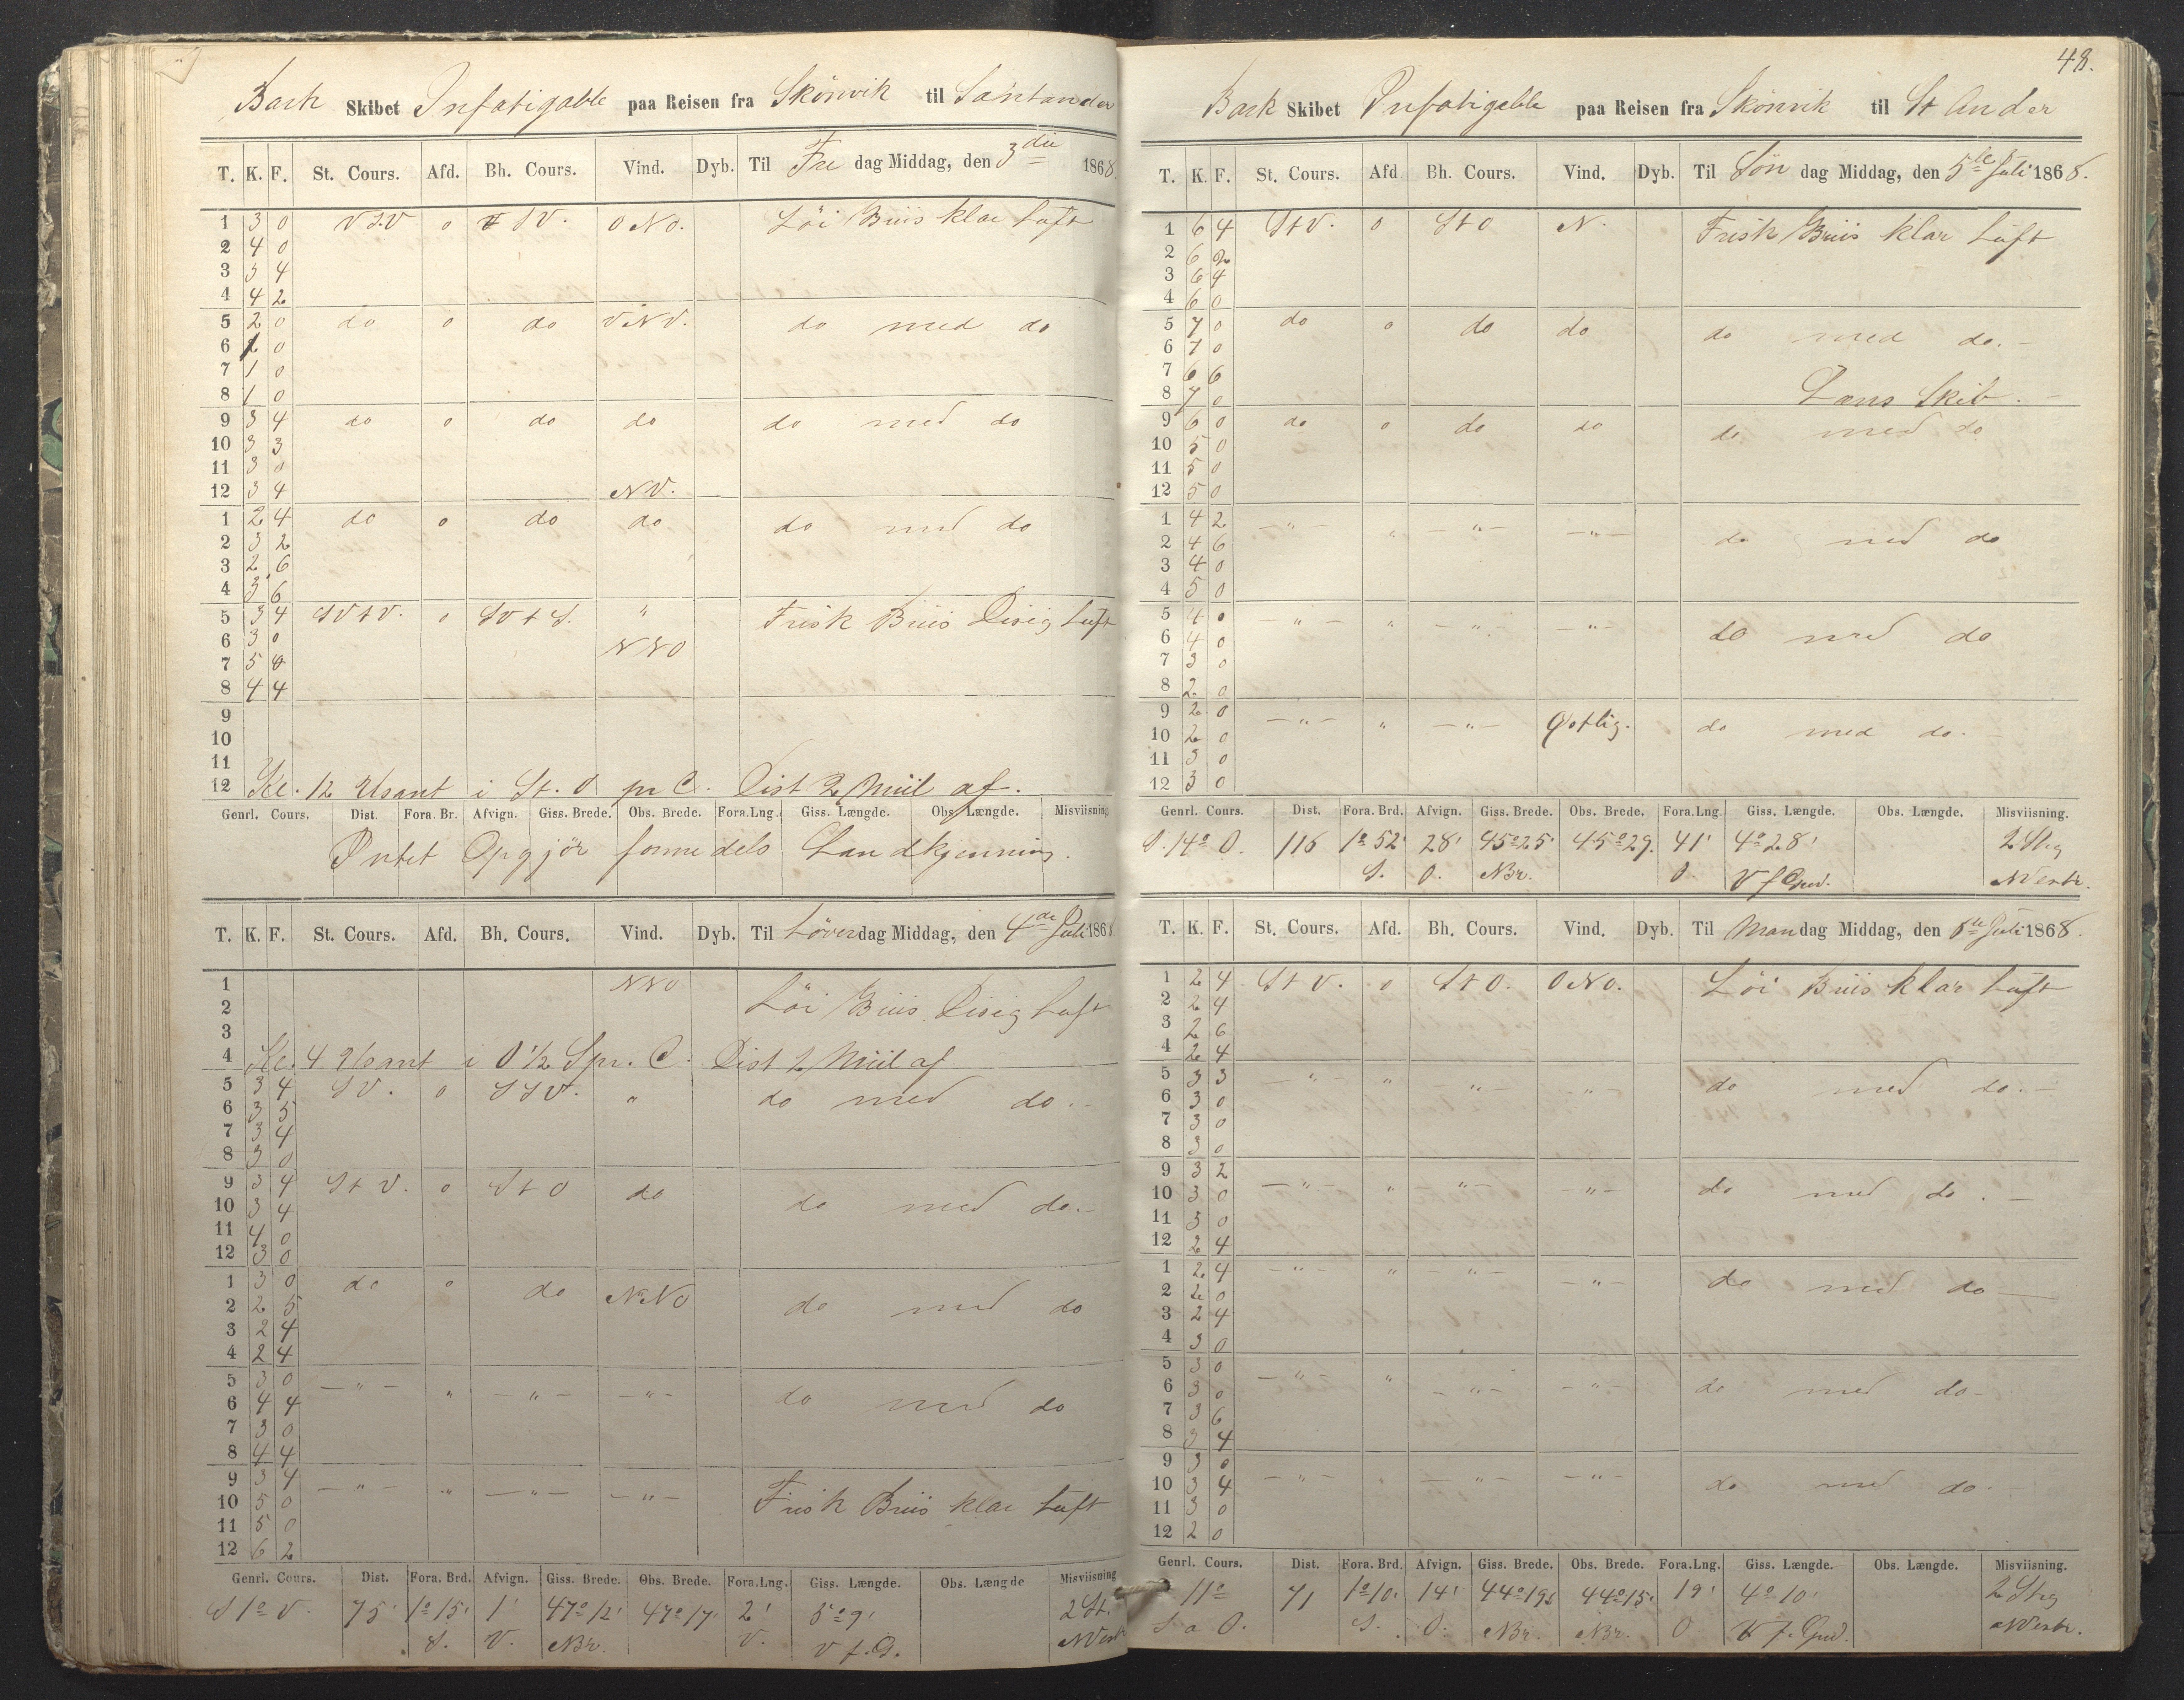 Bark Skibet Infatigable paa Reisen fra Skönvik til Santander
T. K. F. St. Cours. Afd. Bh. Cours. Vind. Dyb. Til Fre dag Middag, den 3die 1868.
1 3 0 VSV 0 SV. ONO. Löi Briis klar Luft
2 4 0
3 3 4
4 4 2
5 2 0 do 0 do VNV. do med do
6 2 0
7 1 0
8 1 0
9 3 4 do 0 do do do med do
10 3 3
11 3 0
12 3 4 NV.
1 2 4 do 0 do do do med do
2 3 2
3 2 6
4 3 6
5 3 4 SVtV. 0 SVtS. " Frisk Briis Disig Luft
6 3 0 NNO
7 5 0
8 4 4
9
10
11
12 Kl. 12 Usant i St. O pr C. Dist 2 Miil af.
Genrl. Cours. Dist. Fora. Br. Afvign. Giss. Brede. Obs. Brede. Fora.Lng. Giss. Længde. Obs. Længde. Misviisning
Intet Opgjör formedels Landkjenning.
T. K. F. St. Cours. Afd. Bh. Cours. Vind. Dyb. Til Löver dag Middag, den 4de Juli 1868
1 NNO Löi Briis Disig Luft
2
3
4 Kl. 4 Usant i O 1/2 S pr. C. Dist 2 Miil af
5 3 4 SV. 0 SSV. " do med do.-
6 3 5
7 3 4
8 3 0
9 3 4 StV. 0 StO do do med do.-
10 3 4
11 4 0
12 3 0
1 3 0 do 0 do NNO do med do
2 2 5
3 2 4
4 2 4
5 3 0 -"- " -"- -"- do med do
6 4 4
7 3 0
8 4 4
9 3 4 -"- " -"- -"- Frisk Briis klar Luft
10 5 0
11 5 0
12 6 2
Genrl. Cours. Dist. Fora. Brd. Afvign. Giss. Brede. Obs. Brede. Fora.Lng. Giss. Længde. Obs. Længde Misviisning
S 1° V. 75' 1°15' 1' 47°12' 47°17' 2' 5°9' 2 St.
S. V. NBr. V. V f. G. NVestr
48.
Bark Skibet Infatigable paa Reisen fra Skönvik til St Ander
T. K. F. St. Cours. Afd Bh. Cours. Vind. Dyb. Til Søn dag Middag, den 5te Juli 1868.
1 6 4 StV. 0 StO N. Frisk Briis klar Luft
2 6 2
3 6 4
4 6 0
5 7 0 do 0 do do do med do.-
6 7 0
7 6 6
8 7 0 Læns Skib.-
9 6 0 do 0 do do do med do
10 5 0
11 5 0
12 5 0
1 4 2 -"- " -"- -"- do med do
2 4 6
3 4 0
4 5 0
5 4 0 -"- " -"- -"- do med do
6 4 0
7 3 0
8 2 0
9 2 0 -"- " -"- Ostlig. do med do.-
10 2 0
11 3 0
12 3 0
Genrl. Cours. Dist. Fora. Brd. Afvign. Giss. Brede. Obs. Brede. Fora.Lng. Giss. Længde. Obs. Længde. Misviisning.
S. 14° O. 116 1°52' 28' 45°25' 45°29. 41' 4°28' 2 Streg
S. O. NBr. O V f Grw. NVestr.
T. K. F. St. Cours. Afd. Bh. Cours. Vind. Dyb. Til Man dag Middag, den 6te Juli 1868.
1 2 4 StV. 0 StO. ONO. Löi Briis klar Luft
2 2 4
3 2 6
4 2 4
5 3 3 -"- " -"- -"- do med do.-
6 3 0
7 3 0
8 3 0
9 3 2 -"- " -"- -"- do med do.-
10 3 0
11 3 0
12 2 4
1 2 4 -"- " -"- -"- do med do-
2 2 0
3 2 4
4 3 0
5 3 0 -"- " -"- -"- do med do-
6 3 0
7 3 6
8 3 4
9 3 0 -"- " -"- -"- do med do.-
10 3 4
11 3 0
12 2 0
Genrl. Cours. Dist. Fora. Brd. Afvign. Giss. Brede. Obs. Brede. Fora.Lng. Giss. Længde. Obs. Længde. Misviisning.
11° 71 1°10' 14' 44°19' 44°15' 19' 4°10' 2 Streg
S a O. S. O. NBr. NBr. O V f. Grw. NVestr.